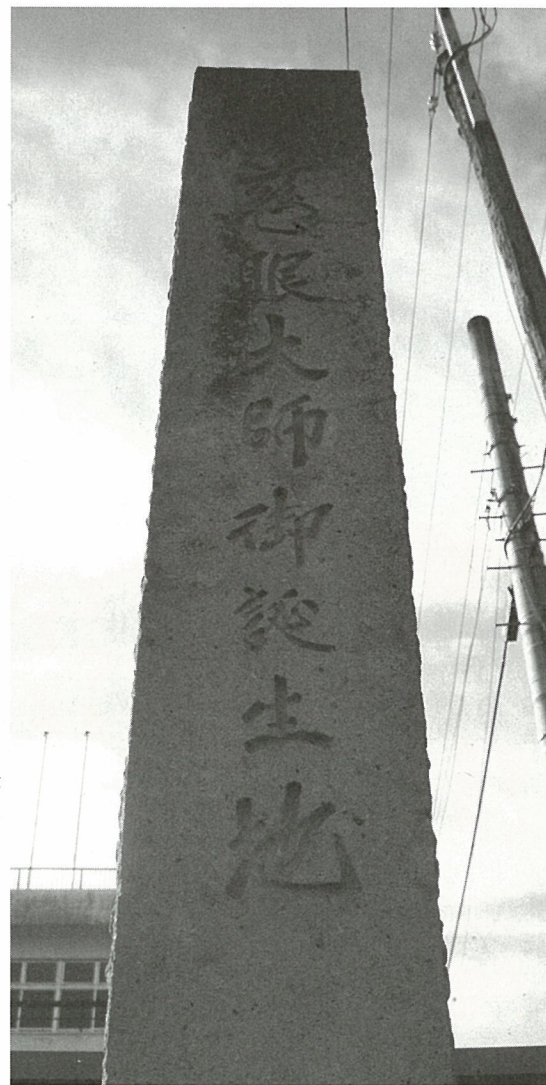 慈眼大師御誕生地